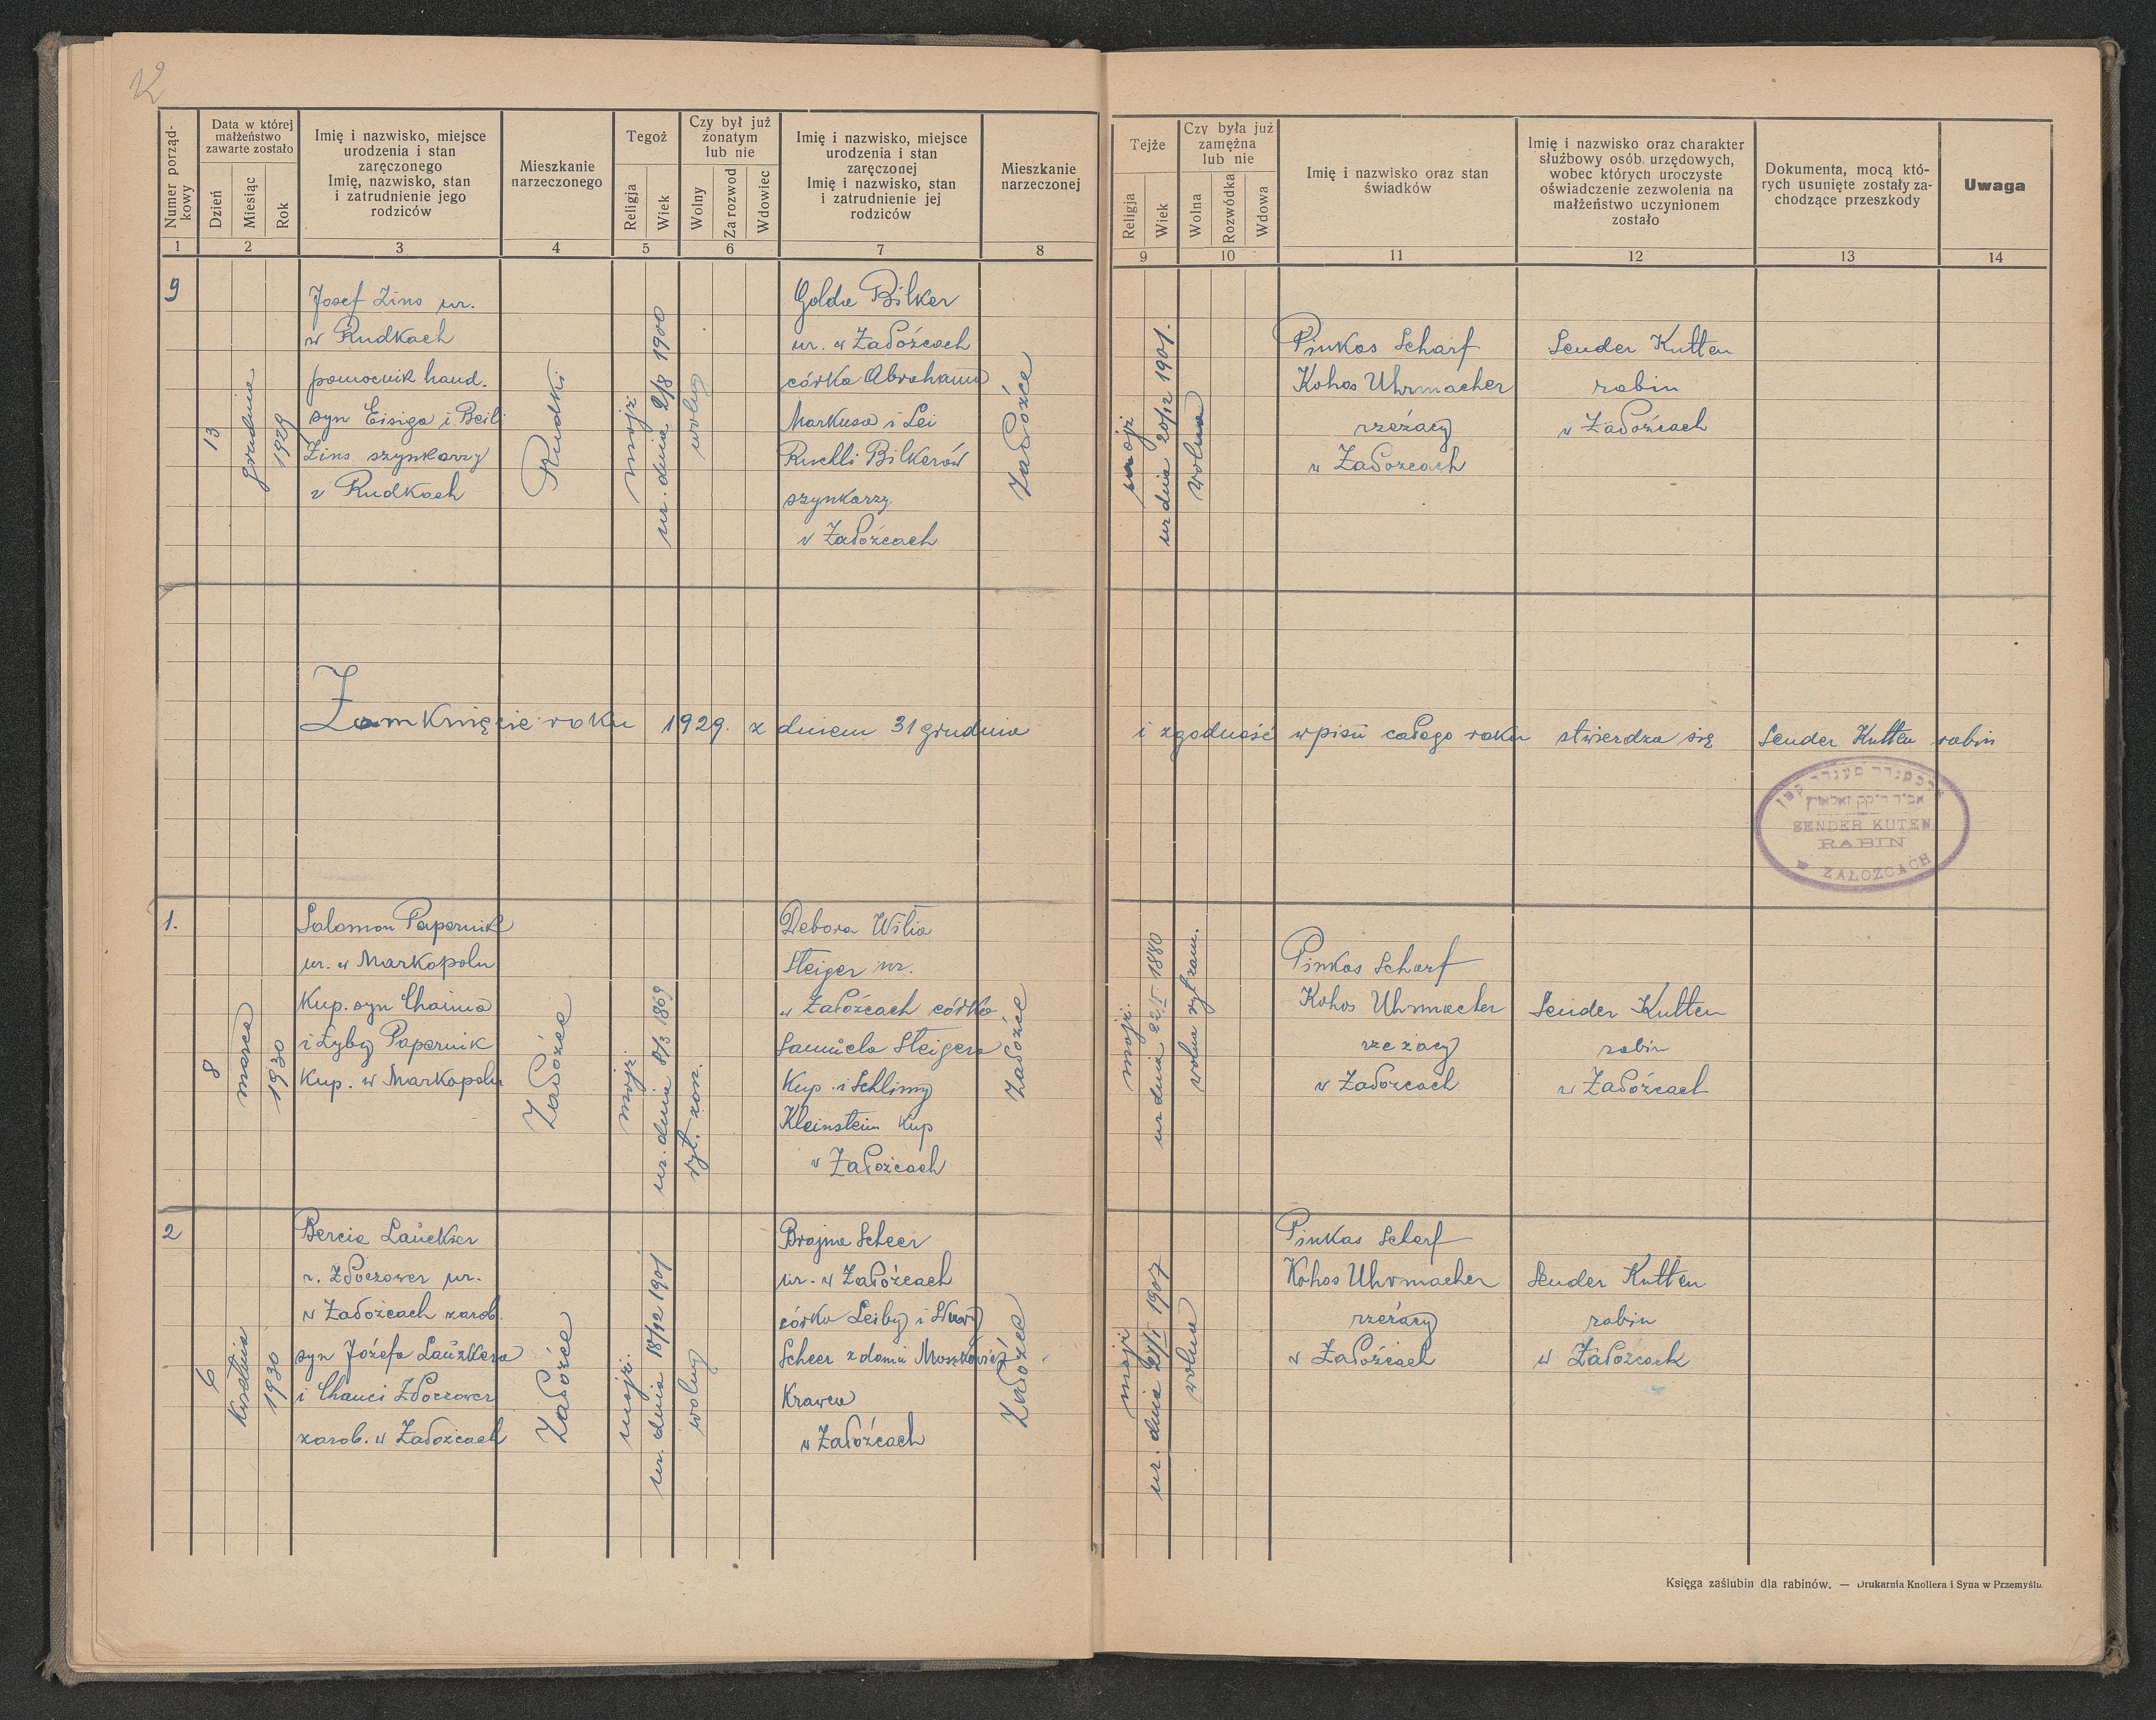 12
Numer porząd-
kowy
Data w której
małżeństwo
zawarte zostało
Dzień
Miesiąc
Rok
Imię i nazwisko, miejsce
urodzenia i stan
zaręczonego
Imię, nazwisko, stan
i zatrudnienie jego
rodziców
Mieszkanie
narzeczonego
Tegoż
Religja
Wiek
Czy był już
żonatym
lub nie
Wolny
Za rozwod
Wdowiec
Imię i nazwisko, miejsce
urodzenia i stan
zaręczonej
Imię i nazwisko, stan
i zatrudnienie jej
rodziców
Mieszkanie
narzeczonej
Tejże
Religja
Wiek
Czy była już
zamężna
lub nie
Wolna
Rozwódka
Wdowa
Imię i nazwisko oraz stan
świadków
Imię i nazwisko oraz charakter
służbowy osób urzędowych,
wobec których uroczyste
oświadczenie zezwolenia na
małżeństwo uczynionem
zostało
Dokumenta, mocą któ-
rych usunięte zostały za-
chodzące przeszkody
Uwaga
1 2 3 4 5 6 7 8 9 10 11 12 13 14
9
13
grudnia
1929
Josef Zins ur.
w Rudkach
pomocnik hand.
syn Eisiga i Beili
Zins szynkarzy
w Rudkach
Rudki
mojż
ur. dnia 2/8 1900
wolny
Golda Bilker
ur. w Załoźcach
córka Abrahama
Markusa i Lei
Ruchli Bilkerów
szynkarzy
w Załoźcach
Załoźce
mojż
ur dnia 20/12 1901.
wolna
Pinkas Scharf
Kohos Uhrmacher
rzeżacy
w Załozcach
Sender Kutten
rabin
w Załoźcach
Zamknięcie roku 1929. z dniem 31 grudnia i zgodność wpisū całego roku stwierdza się Sender Kutten rabin
SENDER KUTEN
RABIN
W ZAŁOŹCACH
1.
8
marca
1930
Salomon Papernik
ur. w Markopolu
Kup. syn Chaima
i Zyby Papernik
Kup. w Markopolu
Załoźce
mojż.
ur. dnia 8/3 1869
ryt. żon.
Debora Wilia
Steiger ur.
w Załoźcach córka
Samūela Steigera
Kup. i Schlimy
Kleinstein Kup
w Załoźcach
Załoźce
mojż.
ur dnia 22/I 1880
wolna ryt zam.
Pinkas Scharf
Kohos Uhrmacher
rzezacy
w Załozcach
Sender Kutten
rabin
w Załoźcach
2
6
Kwietnia
1930
Bercie Laūcker
r. Złoczower ur.
w Załoźcach zarob.
syn Józefa Laūzkera
i Chanci Złoczower
zarob. w Załoźcach
Załoźce
mojż.
ur. dnia 18/12 1901
wolny
Brajna Scheer
ur. w Załoźcach
córka Leiby i
Scheer z domū Moszkowicz
Krawca
w Załoźcach
Załoźce
mojż
ur. dnia 21/I 1907
wolna
Pinkas Scharf
Kohos Uhrmacher
rzeżacy
w Załoźcach
Sender Kutten
rabin
w Załoźcach
Księga zaślubin dla rabinów. — Drukarnia Knollera i Syna w Przemyślu.